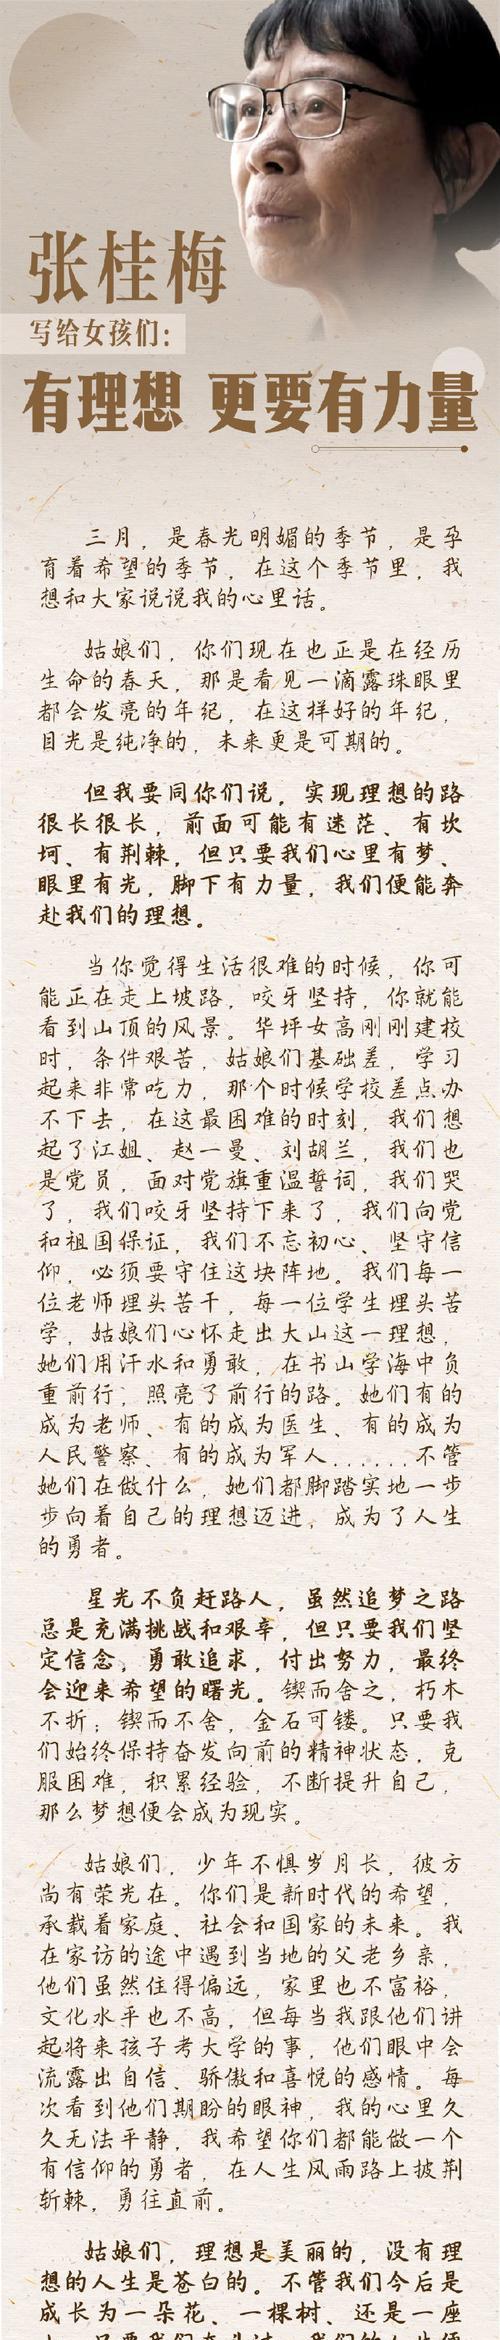 张桂梅
写给女孩们：
有理想 更要有力量
三月，是春光明媚的季节，是孕
育着希望的季节，在这个季节里，我
想和大家说说我的心里话。
姑娘们，你们现在也正是在经历
生命的春天，那是看见一滴露珠眼里
都会发亮的年纪，在这样好的年纪，
目光是纯净的，未来更是可期的。
但我要同你们说，实现理想的路
很长很长，前面可能有迷茫、有坎
坷、有荆棘，但只要我们心里有梦、
眼里有光，脚下有力量，我们便能奔
赴我们的理想。
当你觉得生活很难的时候，你可
能正在走上坡路，咬牙坚持，你就能
看到山顶的风景。华坪女高刚刚建校
时，条件艰苦，姑娘们基础差，学习
起来非常吃力，那个时候学校差点办
不下去，在这最困难的时刻，我们想
起了江姐、赵一曼、刘胡兰，我们也
是党员，面对党旗重温誓词，我们哭
了，我们咬牙坚持下来了，我们向党
和祖国保证，我们不忘初心、坚守信
仰，必须要守住这块阵地。我们每一
位老师埋头苦干，每一位学生埋头苦
学，姑娘们心怀走出大山这一理想，
她们用汗水和勇敢，在书山学海中负
重前行，照亮了前行的路。她们有的
成为老师、有的成为医生、有的成为
人民警察、有的成为军人.......不管
她们在做什么，她们都脚踏实地一步
步向着自己的理想迈进，成为了人生
的勇者。
星光不负赶路人，虽然追梦之路
总是充满挑战和艰辛，但只要我们坚
定信念，勇敢追求，付出努力，最终
会迎来希望的曙光。锲而舍之，朽木
不折；锲而不舍，金石可镂。只要我
们始终保持奋发向前的精神状态，克
服困难，积累经验，不断提升自己，
那么梦想便会成为现实。
姑娘们，少年不惧岁月长，彼方
尚有荣光在。你们是新时代的希望，
承载着家庭、社会和国家的未来。我
在家访的途中遇到当地的父老乡亲，
他们虽然住得偏远，家里也不富裕，
文化水平也不高，但每当我跟他们讲
起将来孩子考大学的事，他们眼中会
流露出自信、骄傲和喜悦的感情。每
次看到他们期盼的眼神，我的心里久
久无法平静，我希望你们都能做一个
有信仰的勇者，在人生风雨路上披荆
斩棘，勇往直前。
姑娘们，理想是美丽的，没有理
想的人生是苍白的。不管我们今后是
成长为一朵花、一棵树、还是一座